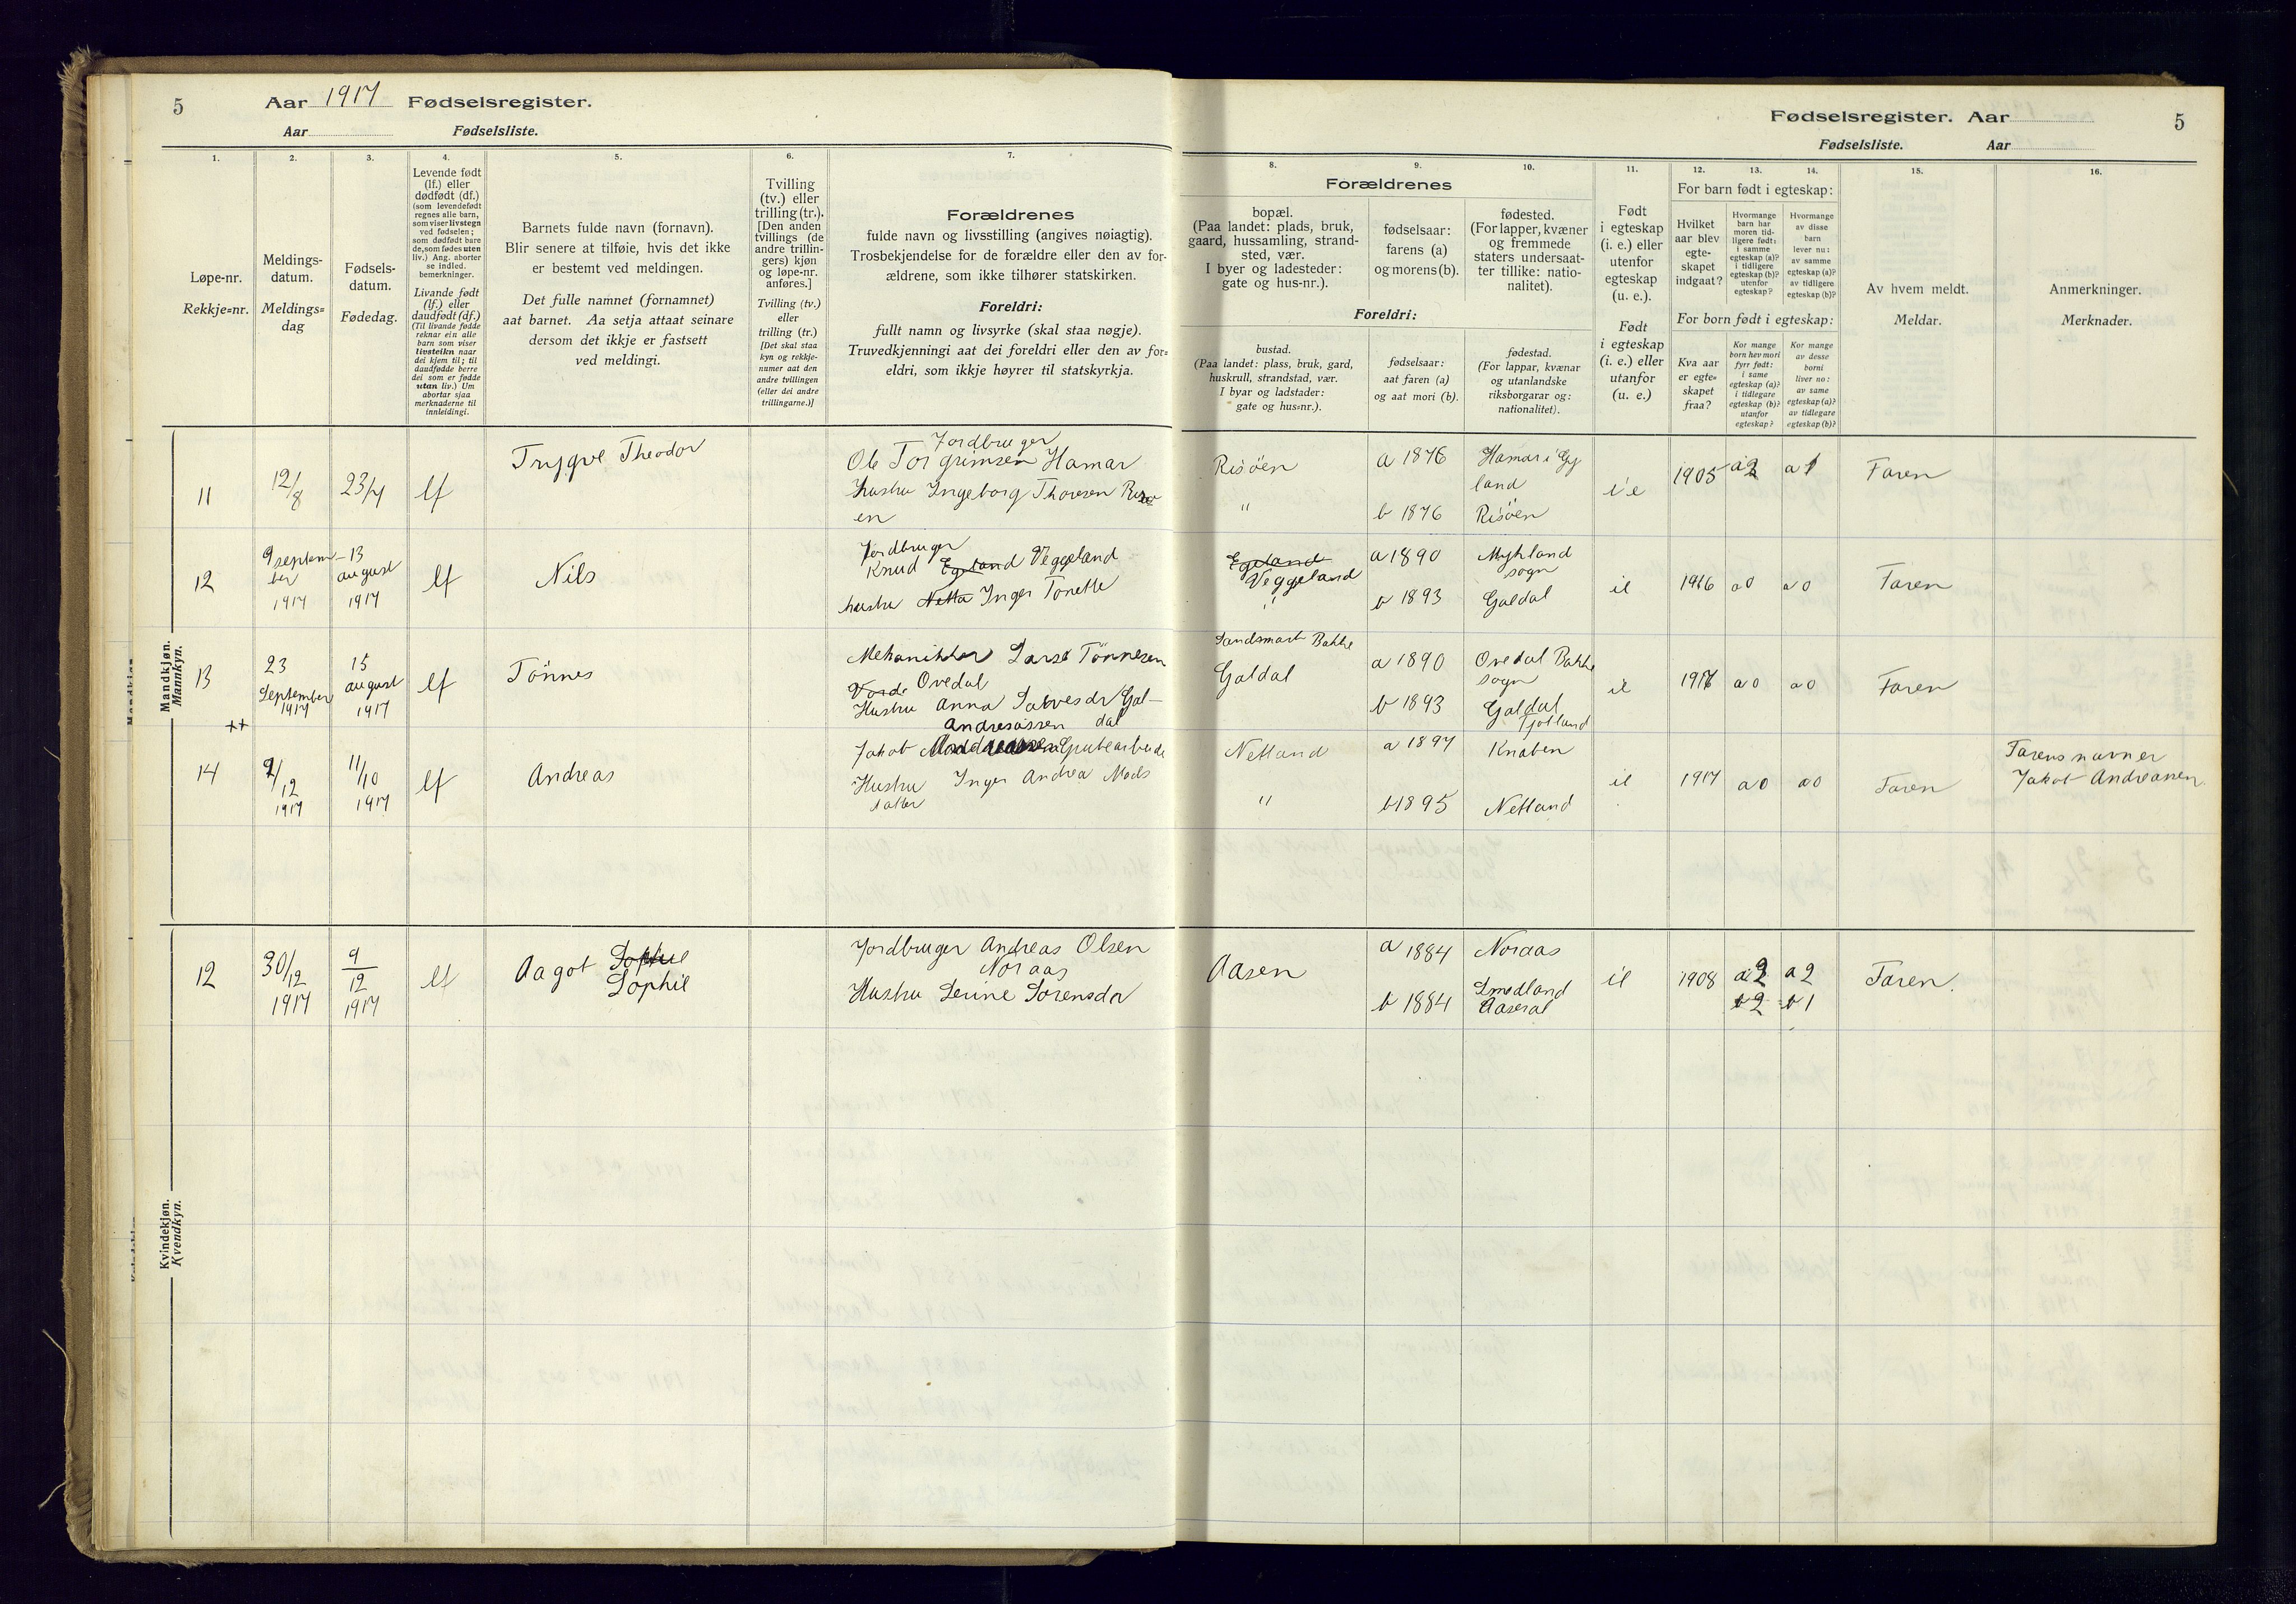 5
Aar 1917 Fødselsregister.
Aar Fødselsliste.
Fødselsregister. Aar
5
Fødselsliste. Aar
1.
Løpe-nr.
Rekkje=nr.
2.
Meldings-
datum.
Meldings=
dag
3.
Fødsels-
datum.
Fødedag.
4.
Levende født
(lf.) eller
dødfødt (df.)
(som levendefødt
regnes alle barn,
som viser livstegn
ved fødselen;
som dødfødt bare
de, som fødes uten
liv.) Ang. aborter
se indled.
bemerkninger.
Livande født
(lf.) eller
daudfødt (df.)
(Til livande fødde
reknar ein alle
barn som viser
livsteikn naar
dei kjem til; til
daudfødde berre
dei som er fødde
utan liv.) Um
abortar sjaa
merknaderne til
innleidingi.
5.
Barnets fulde navn (fornavn).
Blir senere at tilføie, hvis det ikke
er bestemt ved meldingen.
Det fulle namnet (fornamnet)
aat barnet. Aa setja attaat seinare
dersom det ikkje er fastsett
ved meldingi.
6.
Tvilling
(tv.) eller
trilling (tr.).
[Den anden
tvillings (de
andre trillin-
gers) kjøn
og løpe-nr.
anføres.]
Tvilling (tv.)
eller
trilling (tr.)
[Det skal staa
kyn og rekkje-
numer aat den
andre tvillingen
(eller dei andre
trillingarne.)]
7.
Forældrenes
fulde navn og livsstilling (angives nøiagtig).
Trosbekjendelse for de forældre eller den av for-
ældrene, som ikke tilhører statskirken.
Foreldri:
fullt namn og livsyrke (skal staa nøgje).
Truvedkjenningi aat dei foreldri eller den av for=
eldri, som ikkje høyrer til statskyrkja.
8.
9.
10.
Forældrenes
bopæl.
(Paa landet: plads, bruk,
gaard, hussamling, strand-
sted, vær.
I byer og ladesteder:
gate og hus-nr.).
fødselsaar:
farens (a)
og morens (b).
fødested.
(For lapper, kvæner
og fremmede
staters undersaat-
ter tillike: natio-
nalitet).
Foreldri:
bustad.
(Paa landet: plass, bruk, gard,
huskrull, strandstad, vær.
I byar og ladstader:
gate og hus=nr.).
fødselsaar:
aat faren (a)
og aat mori (b).
fødestad.
(For lappar, kvænar
og utanlandske
riksborgarar og:
nationalitet).
11.
Født
i egteskap
(i. e.) eller
utenfor
egteskap
(u. e.).
Født
i egteskap
(i. e.) eller
utanfor
(u. e.)
12.
13.
14.
For barn født i egteskap:
Hvilket
aar blev
egte-
skapet
indgaat?
Hvormange
barn har
moren tid-
ligere født:
i samme
egteskap (a)?
i tidligere
egteskap (b)?
utenfor
egteskap?
Hvormange
av disse
barn
lever nu:
av samme
egteskap (a)?
av tidligere
egteskap (b)?
For born født i egteskap:
Kva aar
er egte=
skapet
fraa?
Kor mange
born hev mori
fyrr født:
i same
egteskap (a)?
i tidlegare
egteskap (b)?
utanfor
egteskap?
Kor mange
av desse
borni
liver no:
av same
egteskap (a)?
av tidlegare
egteskap (b)?
15.
Av hvem meldt.
Meldar.
16.
Anmerkninger.
Merknader.
Mandkjøn.
Mannkyn.
11 12/8 23/7 lf Trygve Theodor
Jordbruger
Ole Torgrimsen Hamar
hustru Ingeborg Thoresen
en
Risöen a 1876 Hamar i Gy
land
" b 1876 Risöen
i e 1905 a 2 a 1 Faren
12 9 septem-
ber
1917
13
august
1917
lf Nils
Jordbruger
Knud Egeland Veggeland
hustru Netta Inger Tonette
Egeland
Veggeland
"
a 1890 Myhland
sogn
b 1893 Galdal
ie 1916 a 0 a 0 Faren
13 23
September
1917
15
august
1917
lf Tönnes
Mehaniker Lars Tönnesen
Ovedal
Hustru Anna Salvesdr Gal-
dal
Sandsmark Bakke
Galdal
a 1890 Ovedal Bakke
sogn
b 1893 Galdal
Fjotland
ie 1917 a 0 a 0 Faren
++
14 9/12
1917
11/10
1917
lf Andreas
Andreassen
Jakob Grubearbeide
Hustru Inger Andrea Mads
datter
Netland a 1897 Knaben
" b 1895 Netland
ie 1917 a 0 a 0 Faren
Farens navn er
Jakob Andreassen
Kvindekjøn.
Kvendkyn.
12 30/12
1917
9
12
1917
lf Aagot Sophie
Sophie
Jordbruger Andreas Olsen
Noraas
Hustru Serine Sörensdr
Aasen a 1884 Noraas
b 1884 Smedland
Aaseral
ie 1908 a 2 a 2 Faren.
b 2 b 1